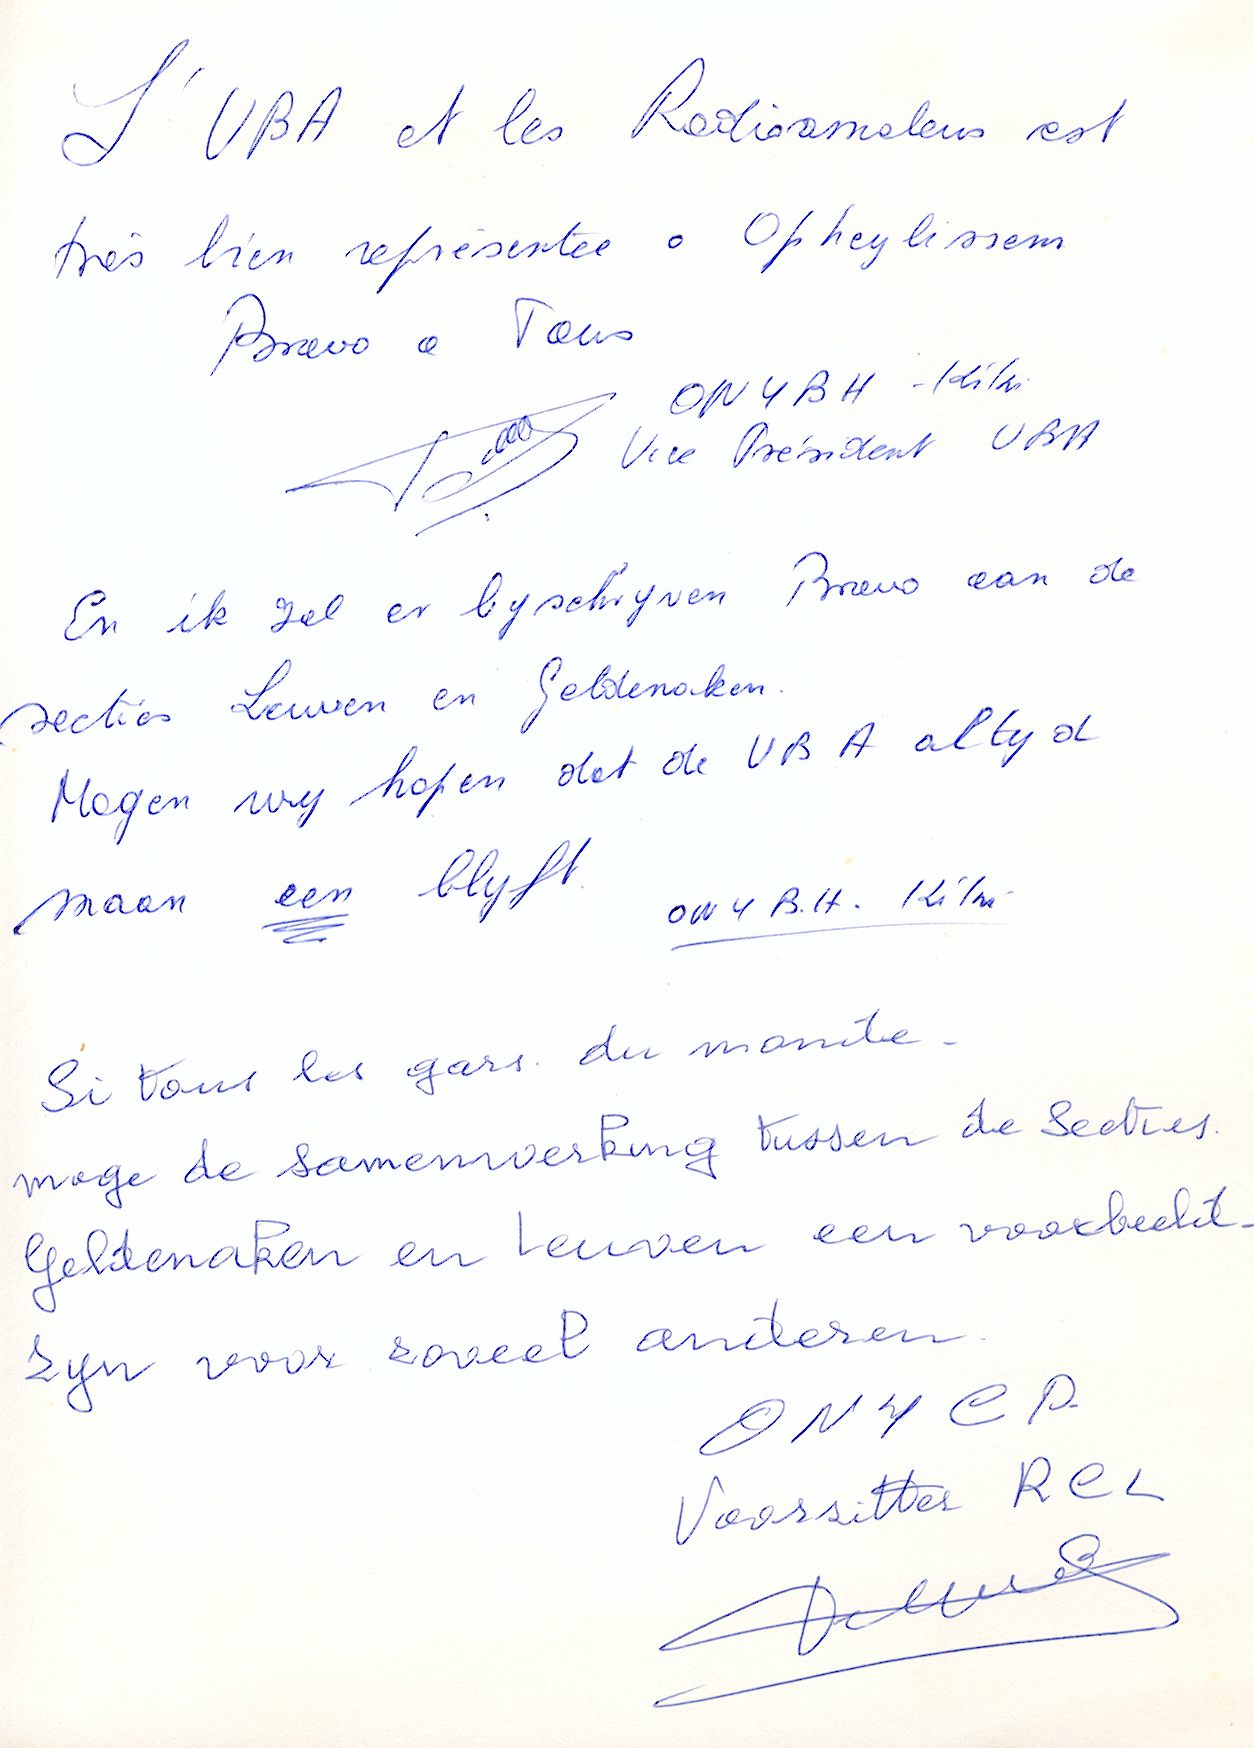 L'UBA et les Radioamateurs est
très bien représentée a Opheylissem
Bravo a Tous
ON4BH - Kiki
Vice Président UBA
En ik zal er byschryven Bravo aan de
secties Leuven en Geldenaken.
Mogen wy hopen dat de UBA altyd
maar een blyft.
ON4B.H. Kiki
Si tous les gars du monde -
moge de samenwerking tussen de Secties
Geldenaken en Leuven een voorbeeld
zyn voor zoveel anderen.
ON4CP.
Voorzitter RCL